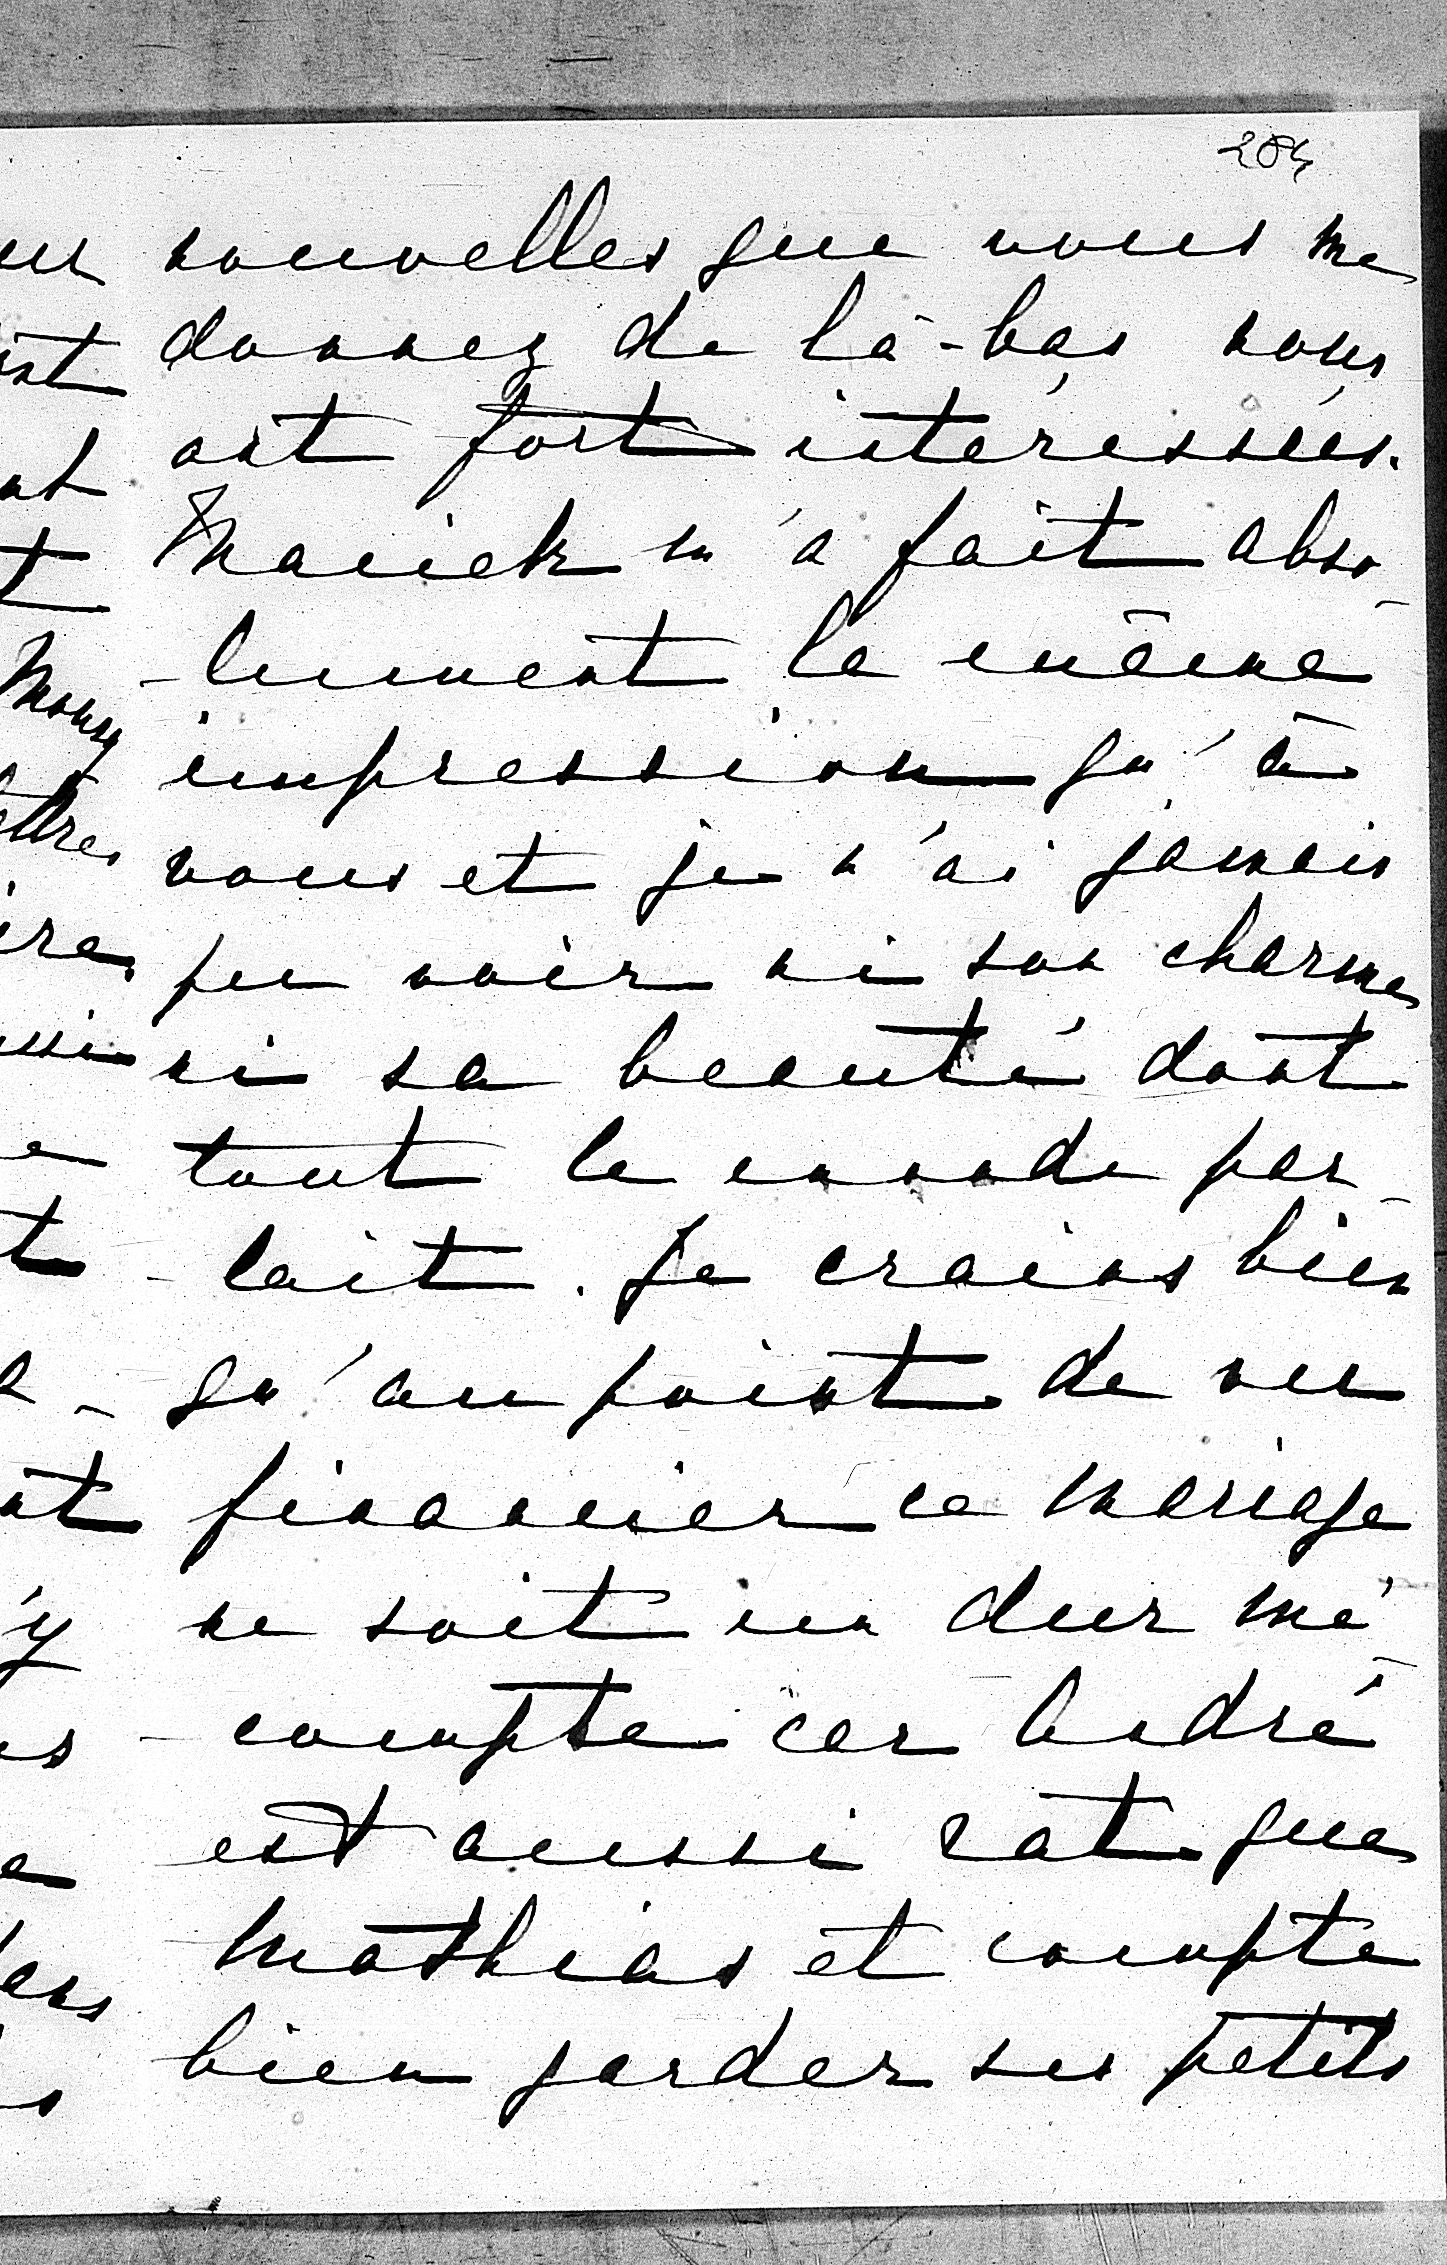 204
nouvelles que vous me
donnez de là-bas nous
ont fort intéressées.
Maciek m'a fait abso-
-lument la même
impression qu'à
vous et je n'ai jamais
pu voir ni son charme
ni sa beauté dont
tout le monde par-
-lait. Je crains bien
qu'au point de vue
financier ce mariage
ne soit un dur mé-
-compte car André
est aussi rat que
Mathias et compte
bien garder ses petits